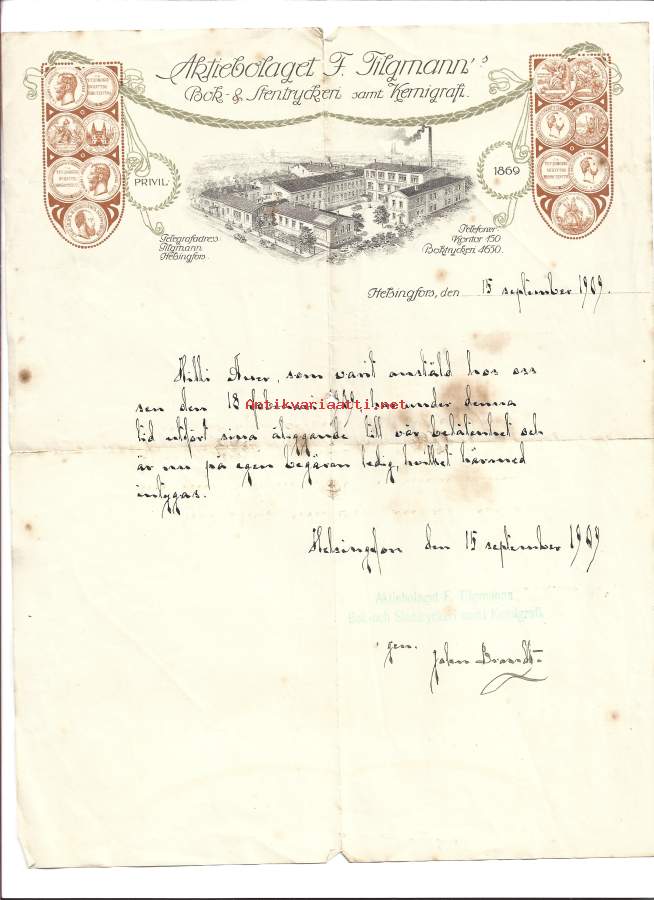 Aktiebolaget F. Tilgmann's
Bok- & Stentryckeri samt Kemigrafi.
PRIVIL.
1869
Telegrafadress
Tilgmann
Helsingfors.
Telefoner:
Kontor 150
Boktryckeri 4630.
Helsingfors, den 15 september 1909.
Hilli, som varit anstäld hos oss
sen den 18 under denna
tid utfört sina åligganden till vår belåtenhet och
är nu på egen begäran ledig, hvilket härmed
intygas.
Antikvariaatti.net
Helsingfors den 15 september 1909
Aktiebolaget F. Tilgmanns
Bok- och Stentryckeri samt Kemigrafi
gm.
John Brandt